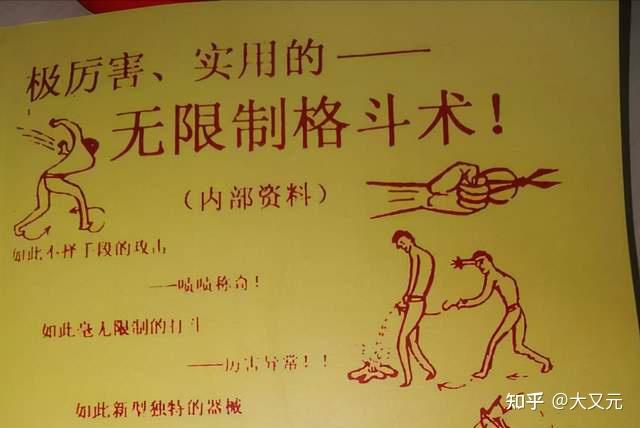 极厉害、实用的——
无限制格斗术！
（内部资料）
如此不择手段的攻击
——啧啧称奇！
如此毫无限制的打斗
——厉害异常！！
如此新型独特的器械
知乎 @大又元